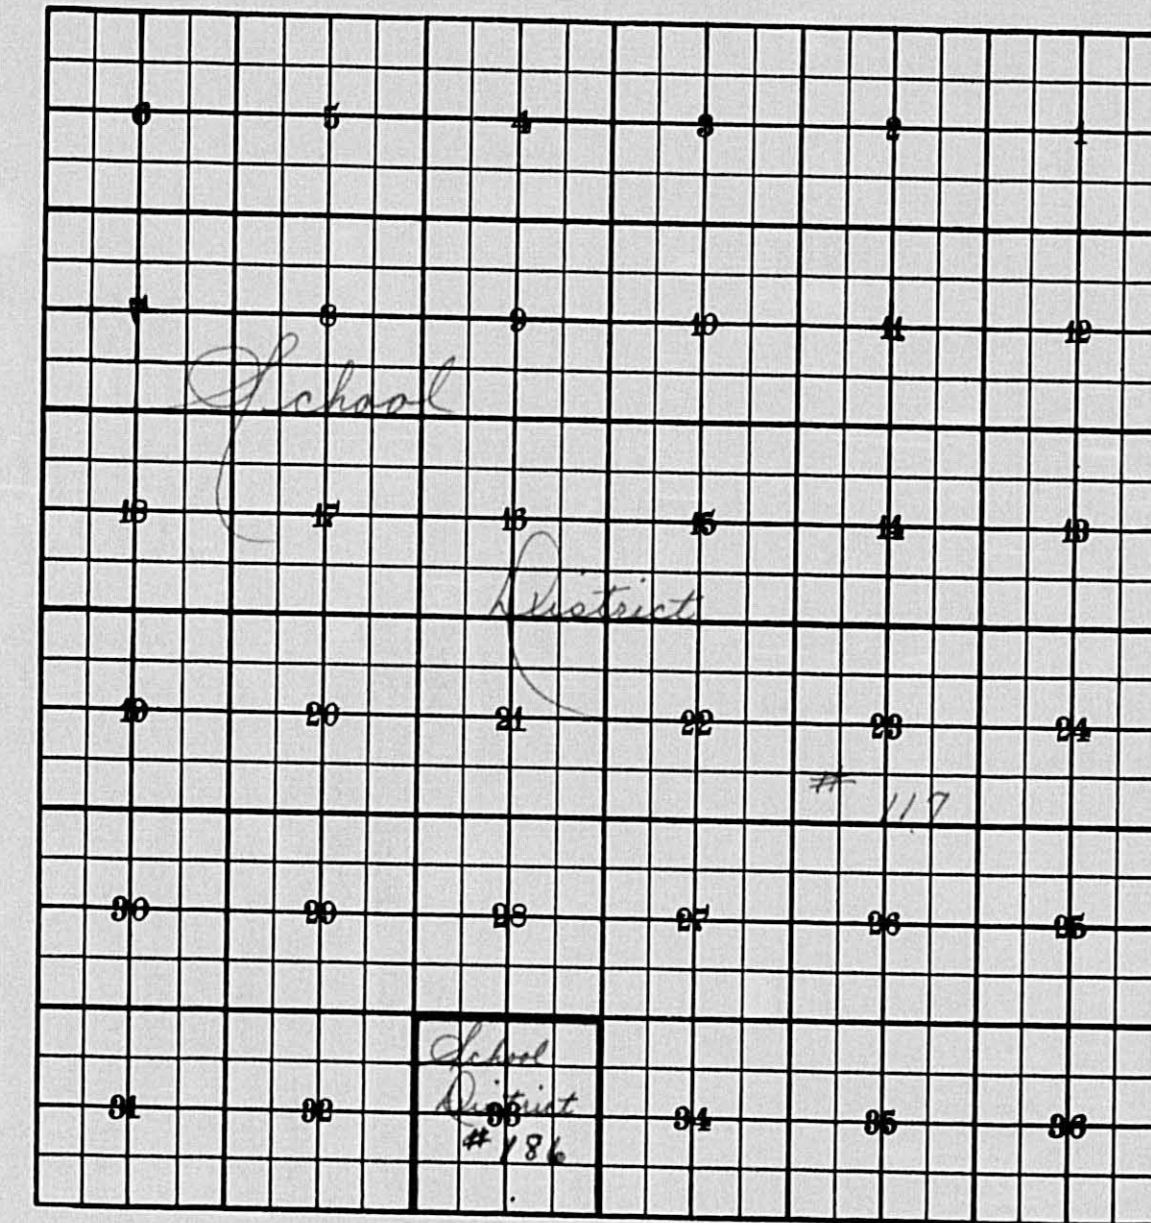 6 5 4 3 2 1
7 8 9 10 11 12
School
18 17 16 15 14 13
District
19 20 21 22 23 24
# 117
30 29 28 27 26 25
School
District
31 32 33 34 35 36
# 186